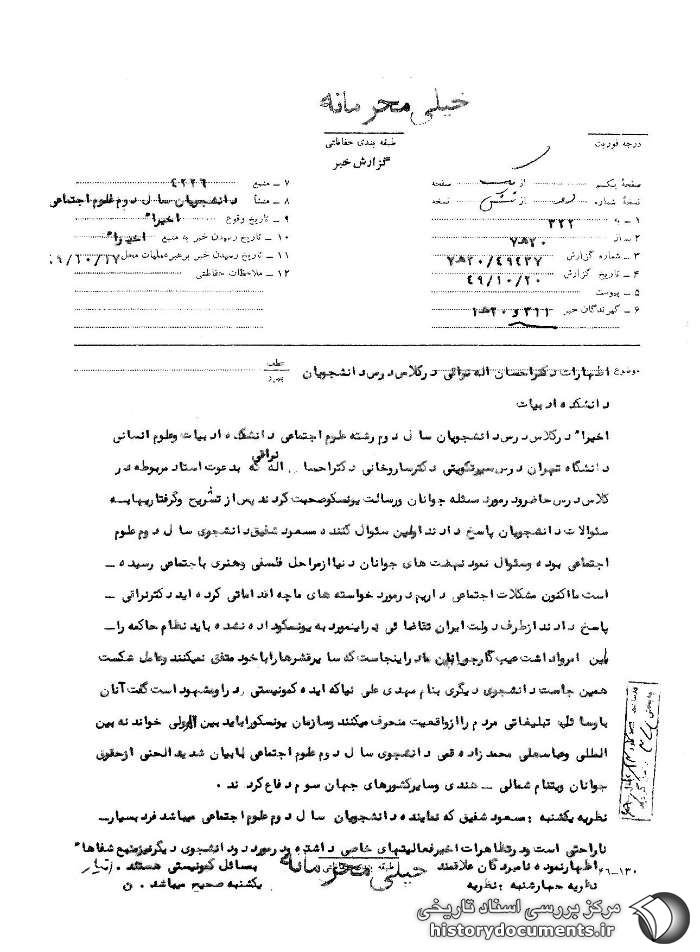 خیلی محرمانه
طبقه بندی حفاظتی
گزارش خبر
درجه فوریت
صفحه یکم از یک صفحه
نسخه شماره از شش نسخه
۱ ـ به ۳۲۲
۲ ـ از ۲۰ هـ ۷
۳ ـ شماره گزارش ۲۰/۴۹۴۳۷ هـ ۷
۴ ـ تاریخ گزارش ۴۹/۱۰/۲۰
۵ ـ پیوست
۶ ـ گیرندگان خبر ۳۱۱ و ۲۰ هـ ۱
۷ ـ منبع ۴۲۲۶
۸ ـ منشأ دانشجویان سال دوم علوم اجتماعی
۹ ـ تاریخ وقوع اخیرا"
۱۰ ـ تاریخ رسیدن خبر به منبع اخیرا"
۱۱ ـ تاریخ رسیدن خبر برهبر عملیات محل ۹/۱۰/۱۷
۱۲ ـ ملاحظات حفاظتی
موضوع اظهارات دکتر احسان اله نراقی در کلاس درس دانشجویان
عطف
پیرو
دانشکده ادبیات
اخیرا" در کلاس درس دانشجویان سال دوم رشته علوم اجتماعی دانشکده ادبیات وعلوم انسانی
دانشگاه تهران درس دکتر ساروخانی دکتر احسان اله نراقی که بدعوت استاد مربوطه در
کلاس درس حاضر و در مورد مسئله جوانان و رسالت یونسکو صحبت کردند پس از تشریح و گرفتاریها به
سئوالات دانشجویان پاسخ دادند اولین سئوال کننده مسعود شفیق دانشجوی سال دوم علوم
اجتماعی بوده وسئوال نمود نهضت های جوانان دنیا از مراحل فلسفی وهنری باجتماعی رسیده ـ
است ما اکنون مشکلات اجتماعی داریم در مورد خواسته های ما چه اقداماتی کرده اید دکتر نراقی ـ
پاسخ دادند از طرف دولت ایران تقاضائی در اینمورد به یونسکو داده نشده باید نظام حاکمه را ـ
باین امر واداشت عیب کار جوانان ما در اینجاست که سایر قشرها را با خود متفق نمیکنند وعامل شکست
همین جاست دانشجوی دیگری بنام مهدی علی نیا که ایده کمونیستی در او مشهود است گفت آنان
با وسائل تبلیغاتی مردم را از واقعیت منحرف میکنند وسازمان یونسکو را باید بین الدولی خواند نه بین
المللی وعباسعلی محمد زاده قمی دانشجوی سال دوم علوم اجتماعی با بیان شدید الحنی از حقوق
جوانان ویتنام شمالی ـ هندی وسایر کشورهای جهان سوم دفاع کردند .
نظریه یکشنبه : مسعود شفیق که نماینده دانشجویان سال دوم علوم اجتماعی میباشد فرد بسیار ـ
ناراحتی است و در تظاهرات اخیر فعالیتهای خاصی داشته در مورد دو دانشجوی دیگر نیز منبع شفاها"
اظهار نموده نامبردگان علاقمند بمسائل کمونیستی هستند .
نظریه چهارشنبه : نظریه یکشنبه صحیح میباشد . ن
۴۶-۱۳۰
طبقه بندی حفاظتی
خیلی محرمانه
مرکز بررسی اسناد تاریخی
historydocuments.ir